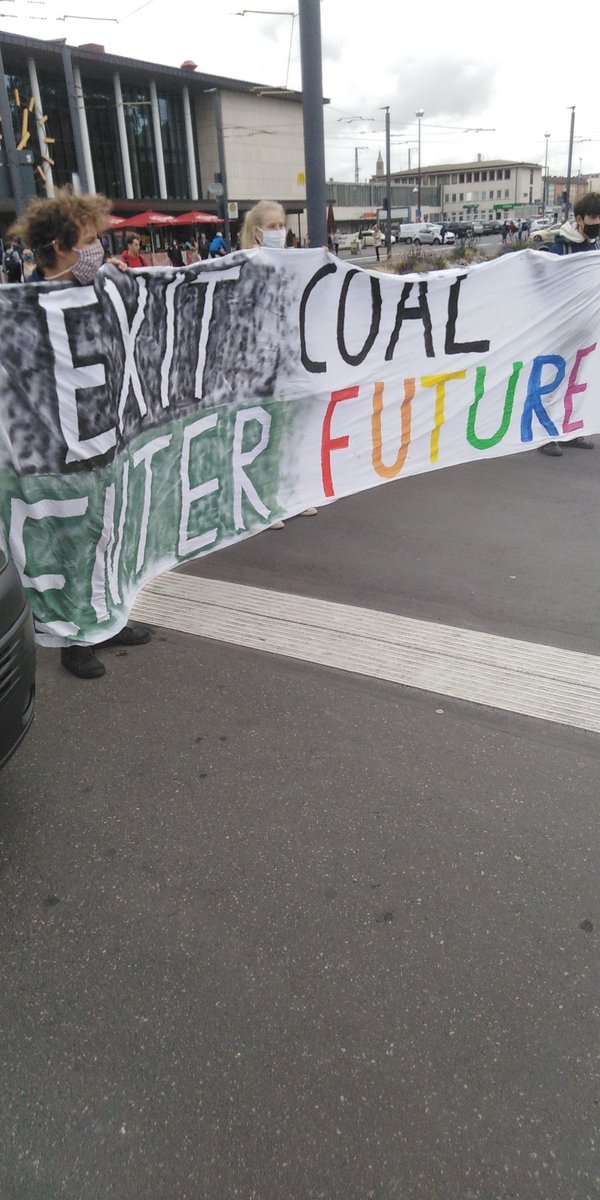 EXIT COAL
ENTER FUTURE